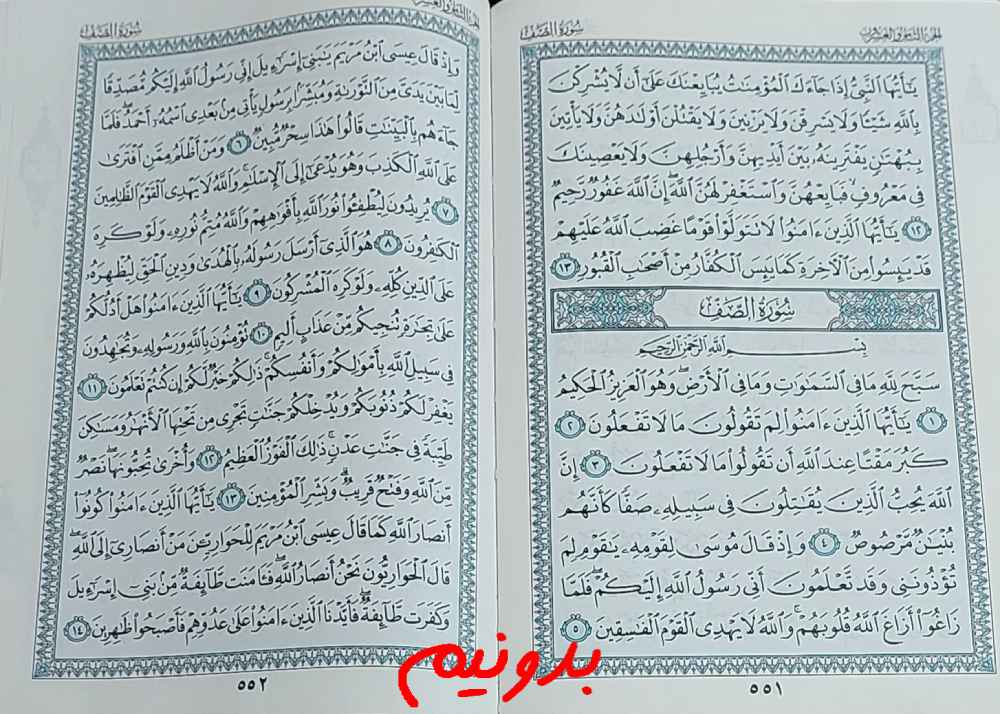 سُورَةُ الصَّفِّ
الجزء الثامن والعشرون
يَٰٓأَيُّهَا ٱلنَّبِيُّ إِذَا جَآءَكَ ٱلْمُؤْمِنَٰتُ يُبَايِعْنَكَ عَلَىٰٓ أَن لَّا يُشْرِكْنَ
بِٱللَّهِ شَيْـًٔا وَلَا يَسْرِقْنَ وَلَا يَزْنِينَ وَلَا يَقْتُلْنَ أَوْلَٰدَهُنَّ وَلَا يَأْتِينَ
بِبُهْتَٰنٍ يَفْتَرِينَهُۥ بَيْنَ أَيْدِيهِنَّ وَأَرْجُلِهِنَّ وَلَا يَعْصِينَكَ
فِى مَعْرُوفٍ فَبَايِعْهُنَّ وَٱسْتَغْفِرْ لَهُنَّ ٱللَّهَ إِنَّ ٱللَّهَ غَفُورٌ رَّحِيمٌ
١٢ يَٰٓأَيُّهَا ٱلَّذِينَ ءَامَنُوا۟ لَا تَتَوَلَّوْا۟ قَوْمًا غَضِبَ ٱللَّهُ عَلَيْهِمْ
قَدْ يَئِسُوا۟ مِنَ ٱلْءَاخِرَةِ كَمَا يَئِسَ ٱلْكُفَّارُ مِنْ أَصْحَٰبِ ٱلْقُبُورِ ١٣
سُورَةُ الصَّفِّ
بِسْمِ ٱللَّهِ ٱلرَّحْمَٰنِ ٱلرَّحِيمِ
سَبَّحَ لِلَّهِ مَا فِى ٱلسَّمَٰوَٰتِ وَمَا فِى ٱلْأَرْضِ وَهُوَ ٱلْعَزِيزُ ٱلْحَكِيمُ
١ يَٰٓأَيُّهَا ٱلَّذِينَ ءَامَنُوا۟ لِمَ تَقُولُونَ مَا لَا تَفْعَلُونَ ٢
كَبُرَ مَقْتًا عِندَ ٱللَّهِ أَن تَقُولُوا۟ مَا لَا تَفْعَلُونَ ٣ إِنَّ
ٱللَّهَ يُحِبُّ ٱلَّذِينَ يُقَٰتِلُونَ فِى سَبِيلِهِۦ صَفًّا كَأَنَّهُم
بُنْيَٰنٌ مَّرْصُوصٌ ٤ وَإِذْ قَالَ مُوسَىٰ لِقَوْمِهِۦ يَٰقَوْمِ لِمَ
تُؤْذُونَنِى وَقَد تَّعْلَمُونَ أَنِّى رَسُولُ ٱللَّهِ إِلَيْكُمْ فَلَمَّا
زَاغُوٓا۟ أَزَاغَ ٱللَّهُ قُلُوبَهُمْ وَٱللَّهُ لَا يَهْدِى ٱلْقَوْمَ ٱلْفَٰسِقِينَ ٥
٥٥١
سُورَةُ الصَّفِّ
وَإِذْ قَالَ عِيسَى ٱبْنُ مَرْيَمَ يَٰبَنِىٓ إِسْرَٰٓءِيلَ إِنِّى رَسُولُ ٱللَّهِ إِلَيْكُم مُّصَدِّقًا
لِّمَا بَيْنَ يَدَىَّ مِنَ ٱلتَّوْرَىٰةِ وَمُبَشِّرًۢا بِرَسُولٍ يَأْتِى مِنۢ بَعْدِى ٱسْمُهُۥٓ أَحْمَدُ فَلَمَّا
جَآءَهُم بِٱلْبَيِّنَٰتِ قَالُوا۟ هَٰذَا سِحْرٌ مُّبِينٌ ٦ وَمَنْ أَظْلَمُ مِمَّنِ ٱفْتَرَىٰ
عَلَى ٱللَّهِ ٱلْكَذِبَ وَهُوَ يُدْعَىٰٓ إِلَى ٱلْإِسْلَٰمِ وَٱللَّهُ لَا يَهْدِى ٱلْقَوْمَ ٱلظَّٰلِمِينَ
٧ يُرِيدُونَ لِيُطْفِـُٔوا۟ نُورَ ٱللَّهِ بِأَفْوَٰهِهِمْ وَٱللَّهُ مُتِمُّ نُورِهِۦ وَلَوْ كَرِهَ
ٱلْكَٰفِرُونَ ٨ هُوَ ٱلَّذِىٓ أَرْسَلَ رَسُولَهُۥ بِٱلْهُدَىٰ وَدِينِ ٱلْحَقِّ لِيُظْهِرَهُۥ
عَلَى ٱلدِّينِ كُلِّهِۦ وَلَوْ كَرِهَ ٱلْمُشْرِكُونَ ٩ يَٰٓأَيُّهَا ٱلَّذِينَ ءَامَنُوا۟ هَلْ أَدُلُّكُمْ
عَلَىٰ تِجَٰرَةٍ تُنجِيكُم مِّنْ عَذَابٍ أَلِيمٍ ١٠ تُؤْمِنُونَ بِٱللَّهِ وَرَسُولِهِۦ وَتُجَٰهِدُونَ
فِى سَبِيلِ ٱللَّهِ بِأَمْوَٰلِكُمْ وَأَنفُسِكُمْ ذَٰلِكُمْ خَيْرٌ لَّكُمْ إِن كُنتُمْ تَعْلَمُونَ ١١
يَغْفِرْ لَكُمْ ذُنُوبَكُمْ وَيُدْخِلْكُمْ جَنَّٰتٍ تَجْرِى مِن تَحْتِهَا ٱلْأَنْهَٰرُ وَمَسَٰكِنَ
طَيِّبَةً فِى جَنَّٰتِ عَدْنٍ ذَٰلِكَ ٱلْفَوْزُ ٱلْعَظِيمُ ١٢ وَأُخْرَىٰ تُحِبُّونَهَا نَصْرٌ
مِّنَ ٱللَّهِ وَفَتْحٌ قَرِيبٌ وَبَشِّرِ ٱلْمُؤْمِنِينَ ١٣ يَٰٓأَيُّهَا ٱلَّذِينَ ءَامَنُوا۟ كُونُوٓا۟
أَنصَارَ ٱللَّهِ كَمَا قَالَ عِيسَى ٱبْنُ مَرْيَمَ لِلْحَوَارِيِّـۧنَ مَنْ أَنصَارِىٓ إِلَى ٱللَّهِ
قَالَ ٱلْحَوَارِيُّونَ نَحْنُ أَنصَارُ ٱللَّهِ فَـَٔامَنَت طَّآئِفَةٌ مِّنۢ بَنِىٓ إِسْرَٰٓءِيلَ
وَكَفَرَت طَّآئِفَةٌ فَأَيَّدْنَا ٱلَّذِينَ ءَامَنُوا۟ عَلَىٰ عَدُوِّهِمْ فَأَصْبَحُوا۟ ظَٰهِرِينَ ١٤
٥٥٢
بدونیم